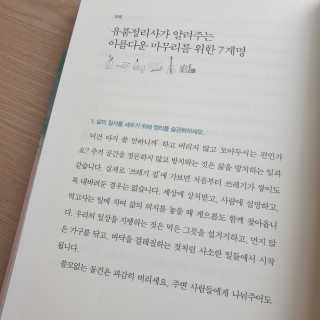 부록
유품정리사가 알려주는
아름다운 마무리를 위한 7계명
1. 삶의 질서를 세우기 위해 정리를 습관화하세요.
'이건 아직 쓸 만하니까' 하고 버리지 않고 모아두시는 편인가
요? 주거 공간을 정돈하지 않고 방치하는 것은 삶을 망치는 일과
같습니다. 실제로 '쓰레기 집'에 가보면 처음부터 쓰레기가 쌓이도
록 내버려둔 경우는 없습니다. 세상에 상처받고, 사람에 실망하고,
먹고사는 일에 치여 삶의 의지를 놓을 때 게으름도 함께 찾아옵니
다. 우리의 일상을 지탱하는 것은 먹은 그릇을 설거지하고, 먼지 앉
은 가구를 닦고, 바닥을 걸레질하는 것처럼 사소한 일들에서 시작
됩니다.
쓸모없는 물건은 과감히 버리세요. 주변 사람들에게 나눠주어도